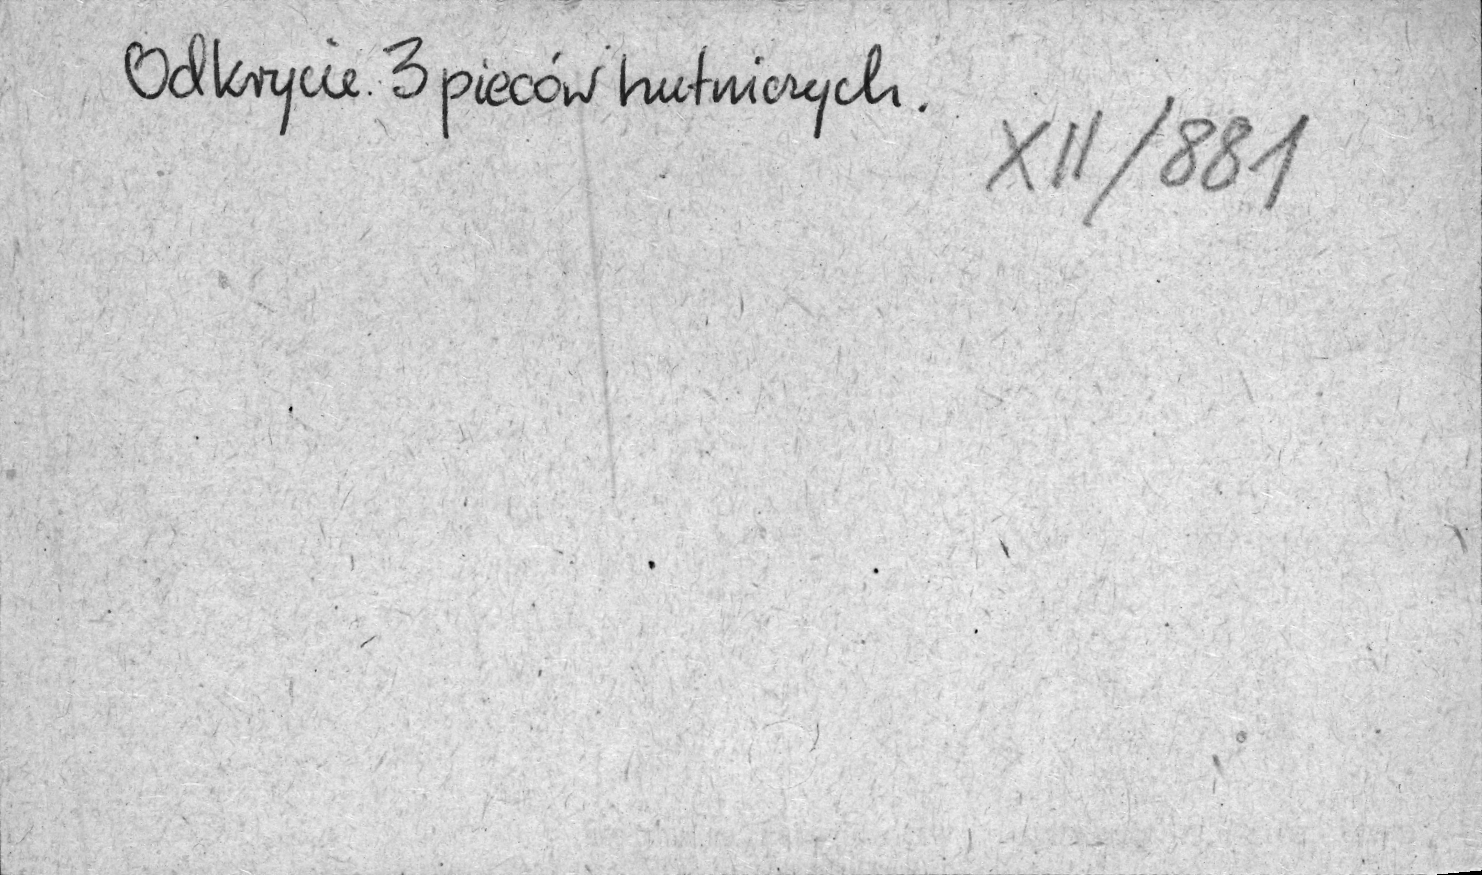 Odkrycie 3 pieców hutniczych.
XII/881